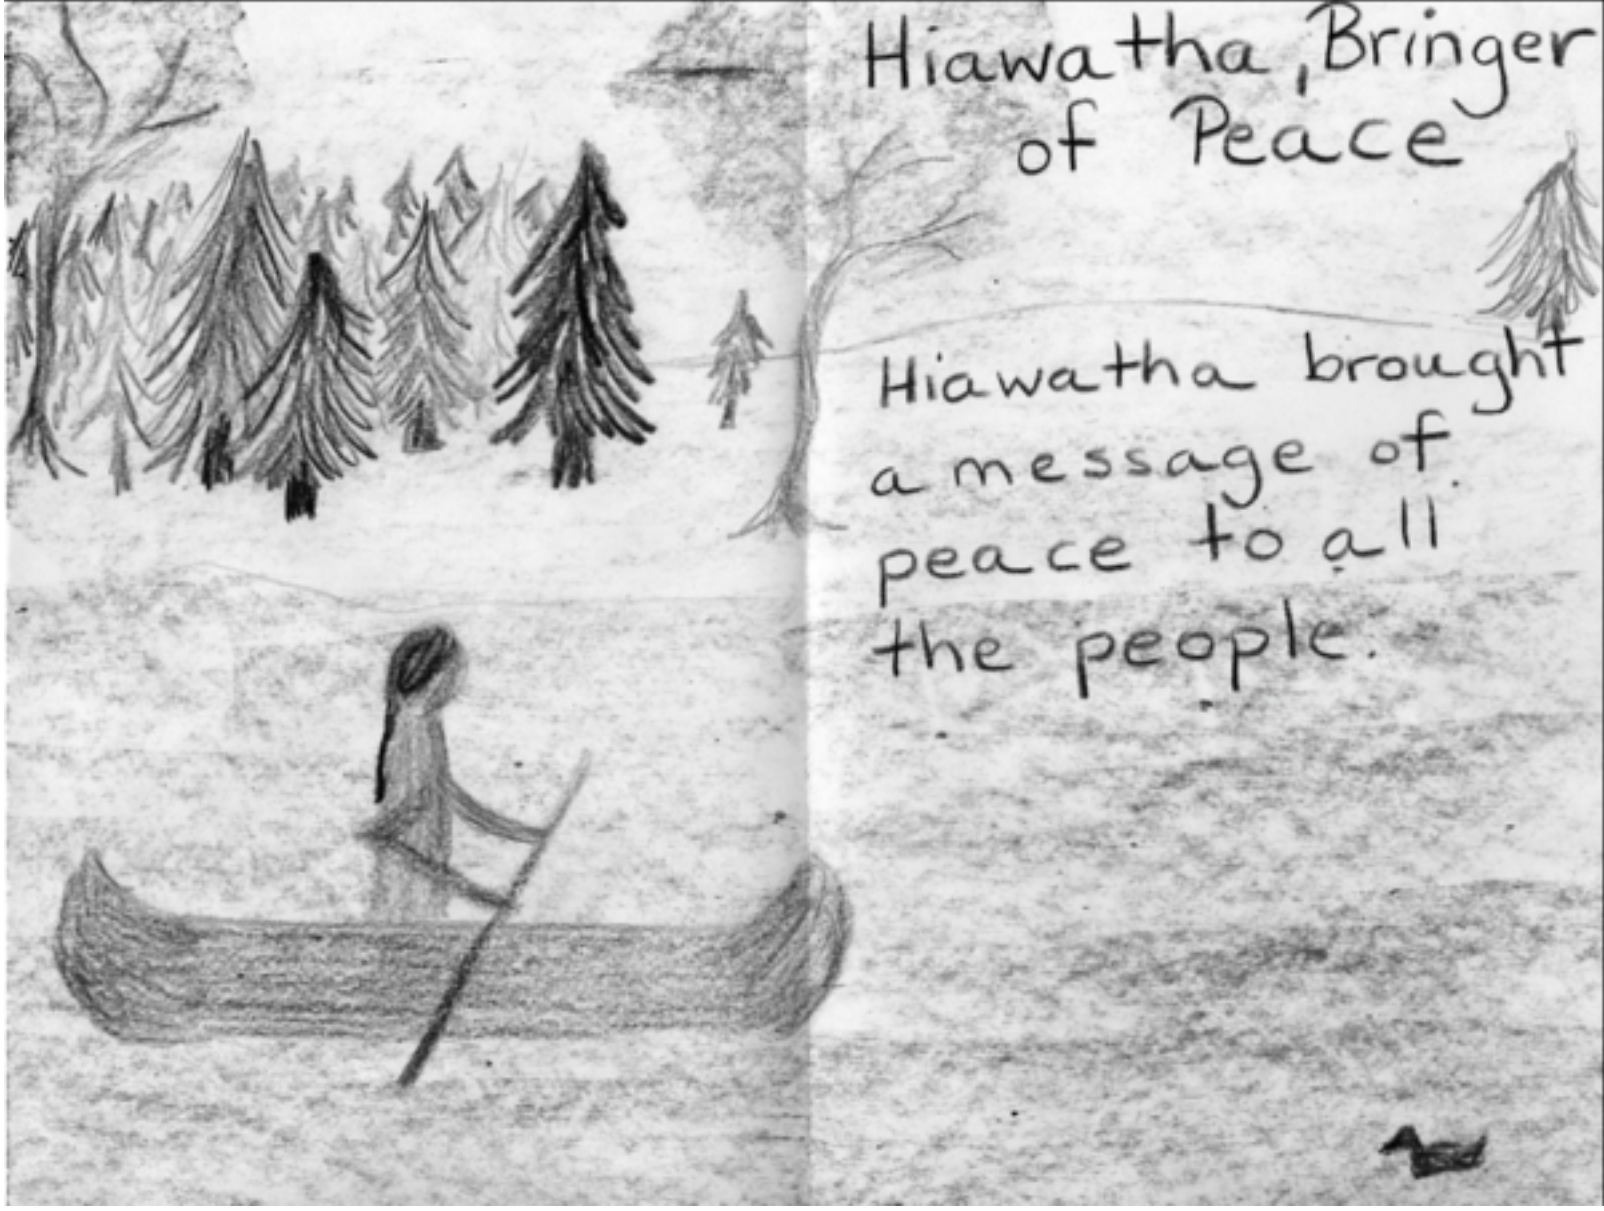 Hiawatha, Bringer
of Peace
Hiawatha brought
a message of
peace to all
the people.